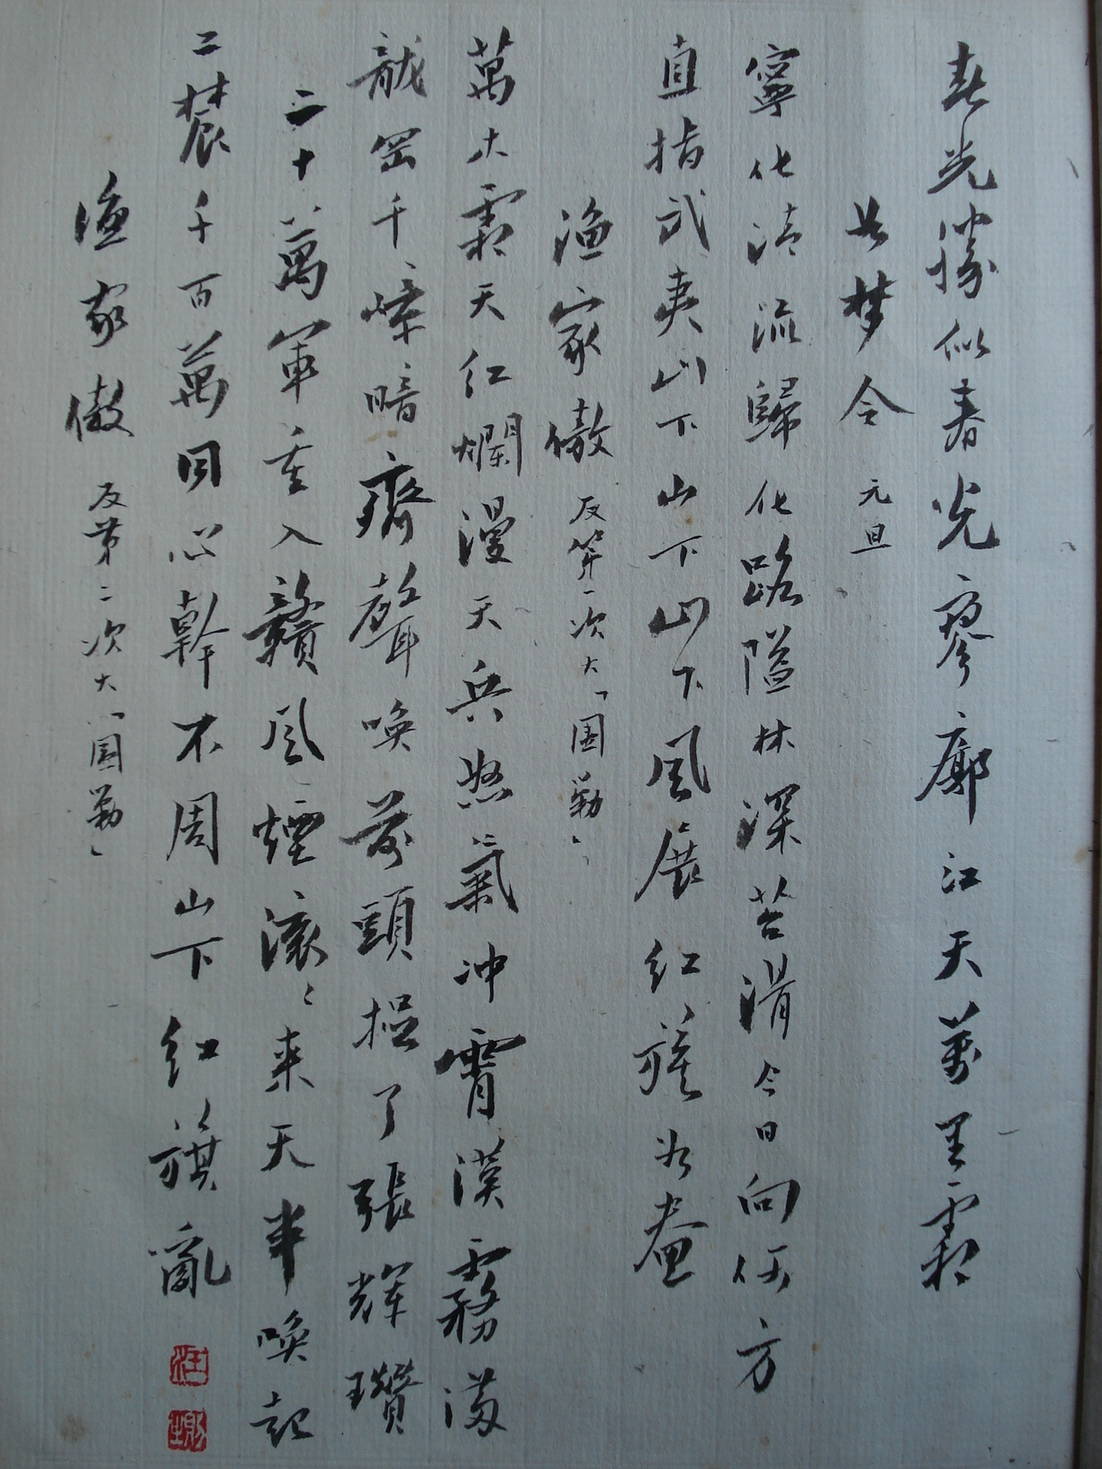 春光勝似春光寥廓江天萬里霜
如梦令 元旦
寧化清流歸化路隘林深苔滑今日向何方
直指武夷山下山下山下風展红旗如畫
渔家傲 反第一次大「围剿」
萬木霜天红爛漫天兵怒氣冲霄漢霧滿
龍岡千嶂暗齊聲唤前頭捉了張輝瓚
二十萬軍重入贛風煙滚〻来天半唤起
工農千百萬同心幹不周山下红旗亂
渔家傲 反第二次大「围剿」